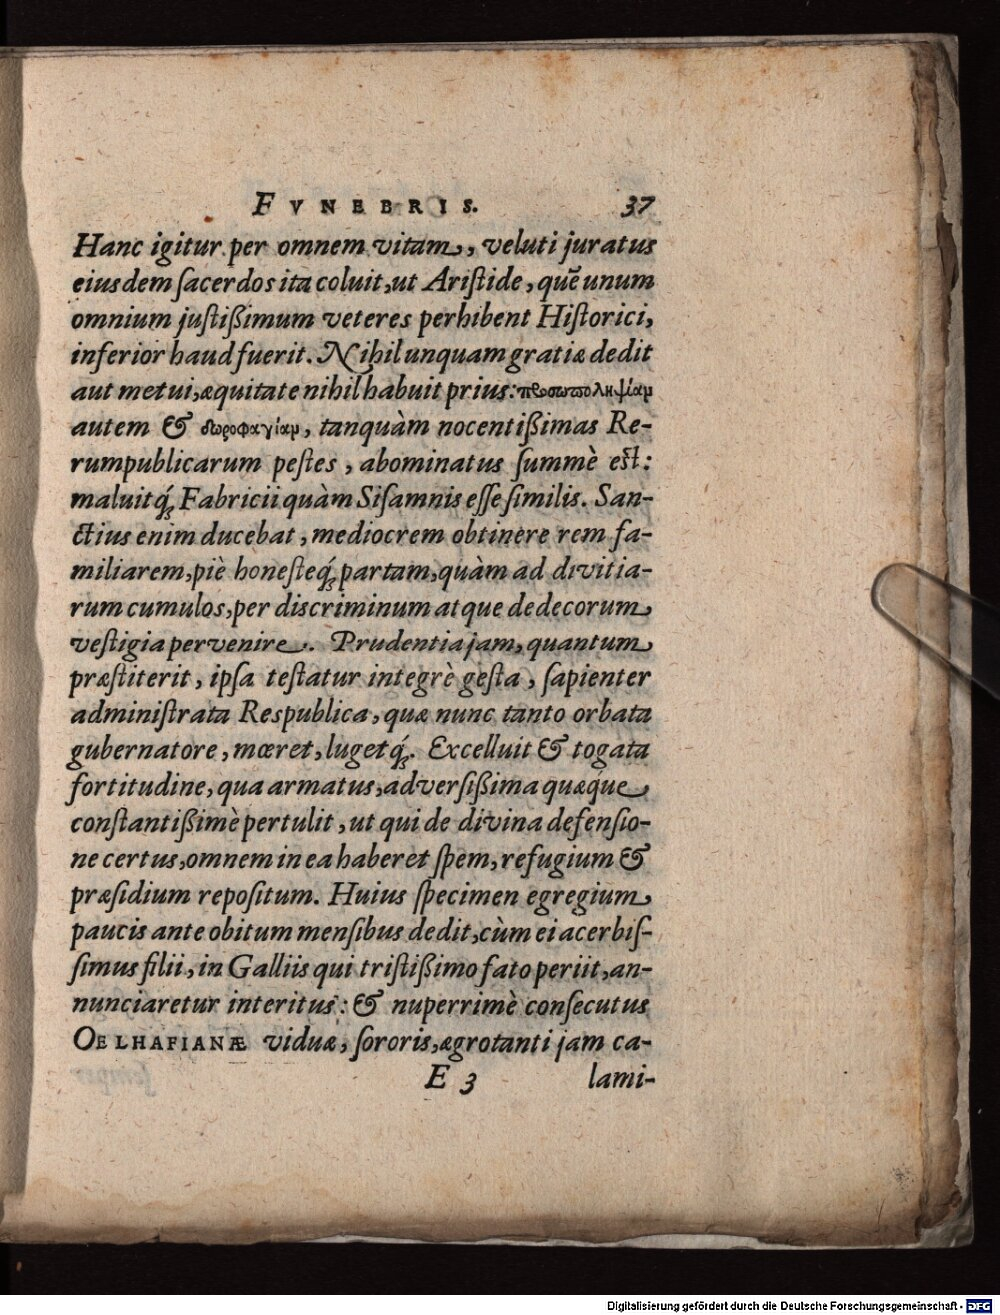 FVNEBRIS. 37
Hanc igitur per omnem vitam, veluti juratus
eiusdem ſacerdos ita coluit, ut Ariſtide, quẽ unum
omnium juſtiſsimum veteres perhibent Hiſtorici,
inferior haud fuerit. Nihil unquam gratiæ dedit
aut metui, æquitate nihil habuit prius: προσωποληψίαμ
autem & δωροφαγίαμ, tanquàm nocentiſsimas Re-
rumpublicarum peſtes, abominatus ſummè eſt:
maluitq́; Fabricii quàm Siſamnis eſſe ſimilis. San-
ctius enim ducebat, mediocrem obtinere rem fa-
miliarem, piè honeſteq́; partam, quàm ad divitia-
rum cumulos, per discriminum atque dedecorum
veſtigia pervenire. Prudentia jam, quantum
præſtiterit, ipſa teſtatur integrè geſta, ſapienter
adminiſtrata Respublica, quæ nunc tanto orbata
gubernatore, mœret, lugetq́;. Excelluit & togata
fortitudine, qua armatus, adverſiſsima quæque
conſtantiſsimè pertulit, ut qui de divina defenſio-
ne certus, omnem in ea haberet ſpem, refugium &
præſidium repoſitum. Huius ſpecimen egregium
paucis ante obitum menſibus dedit, cùm ei acerbiſ-
ſimus filii, in Galliis qui triſtiſsimo fato periit, an-
nunciaretur interitus: & nuperrimè conſecutus
OELHAFIANÆ viduæ, ſororis, ægrotanti jam ca-
E 3 lami-
Digitalisierung gefördert durch die Deutsche Forschungsgemeinschaft - DFG